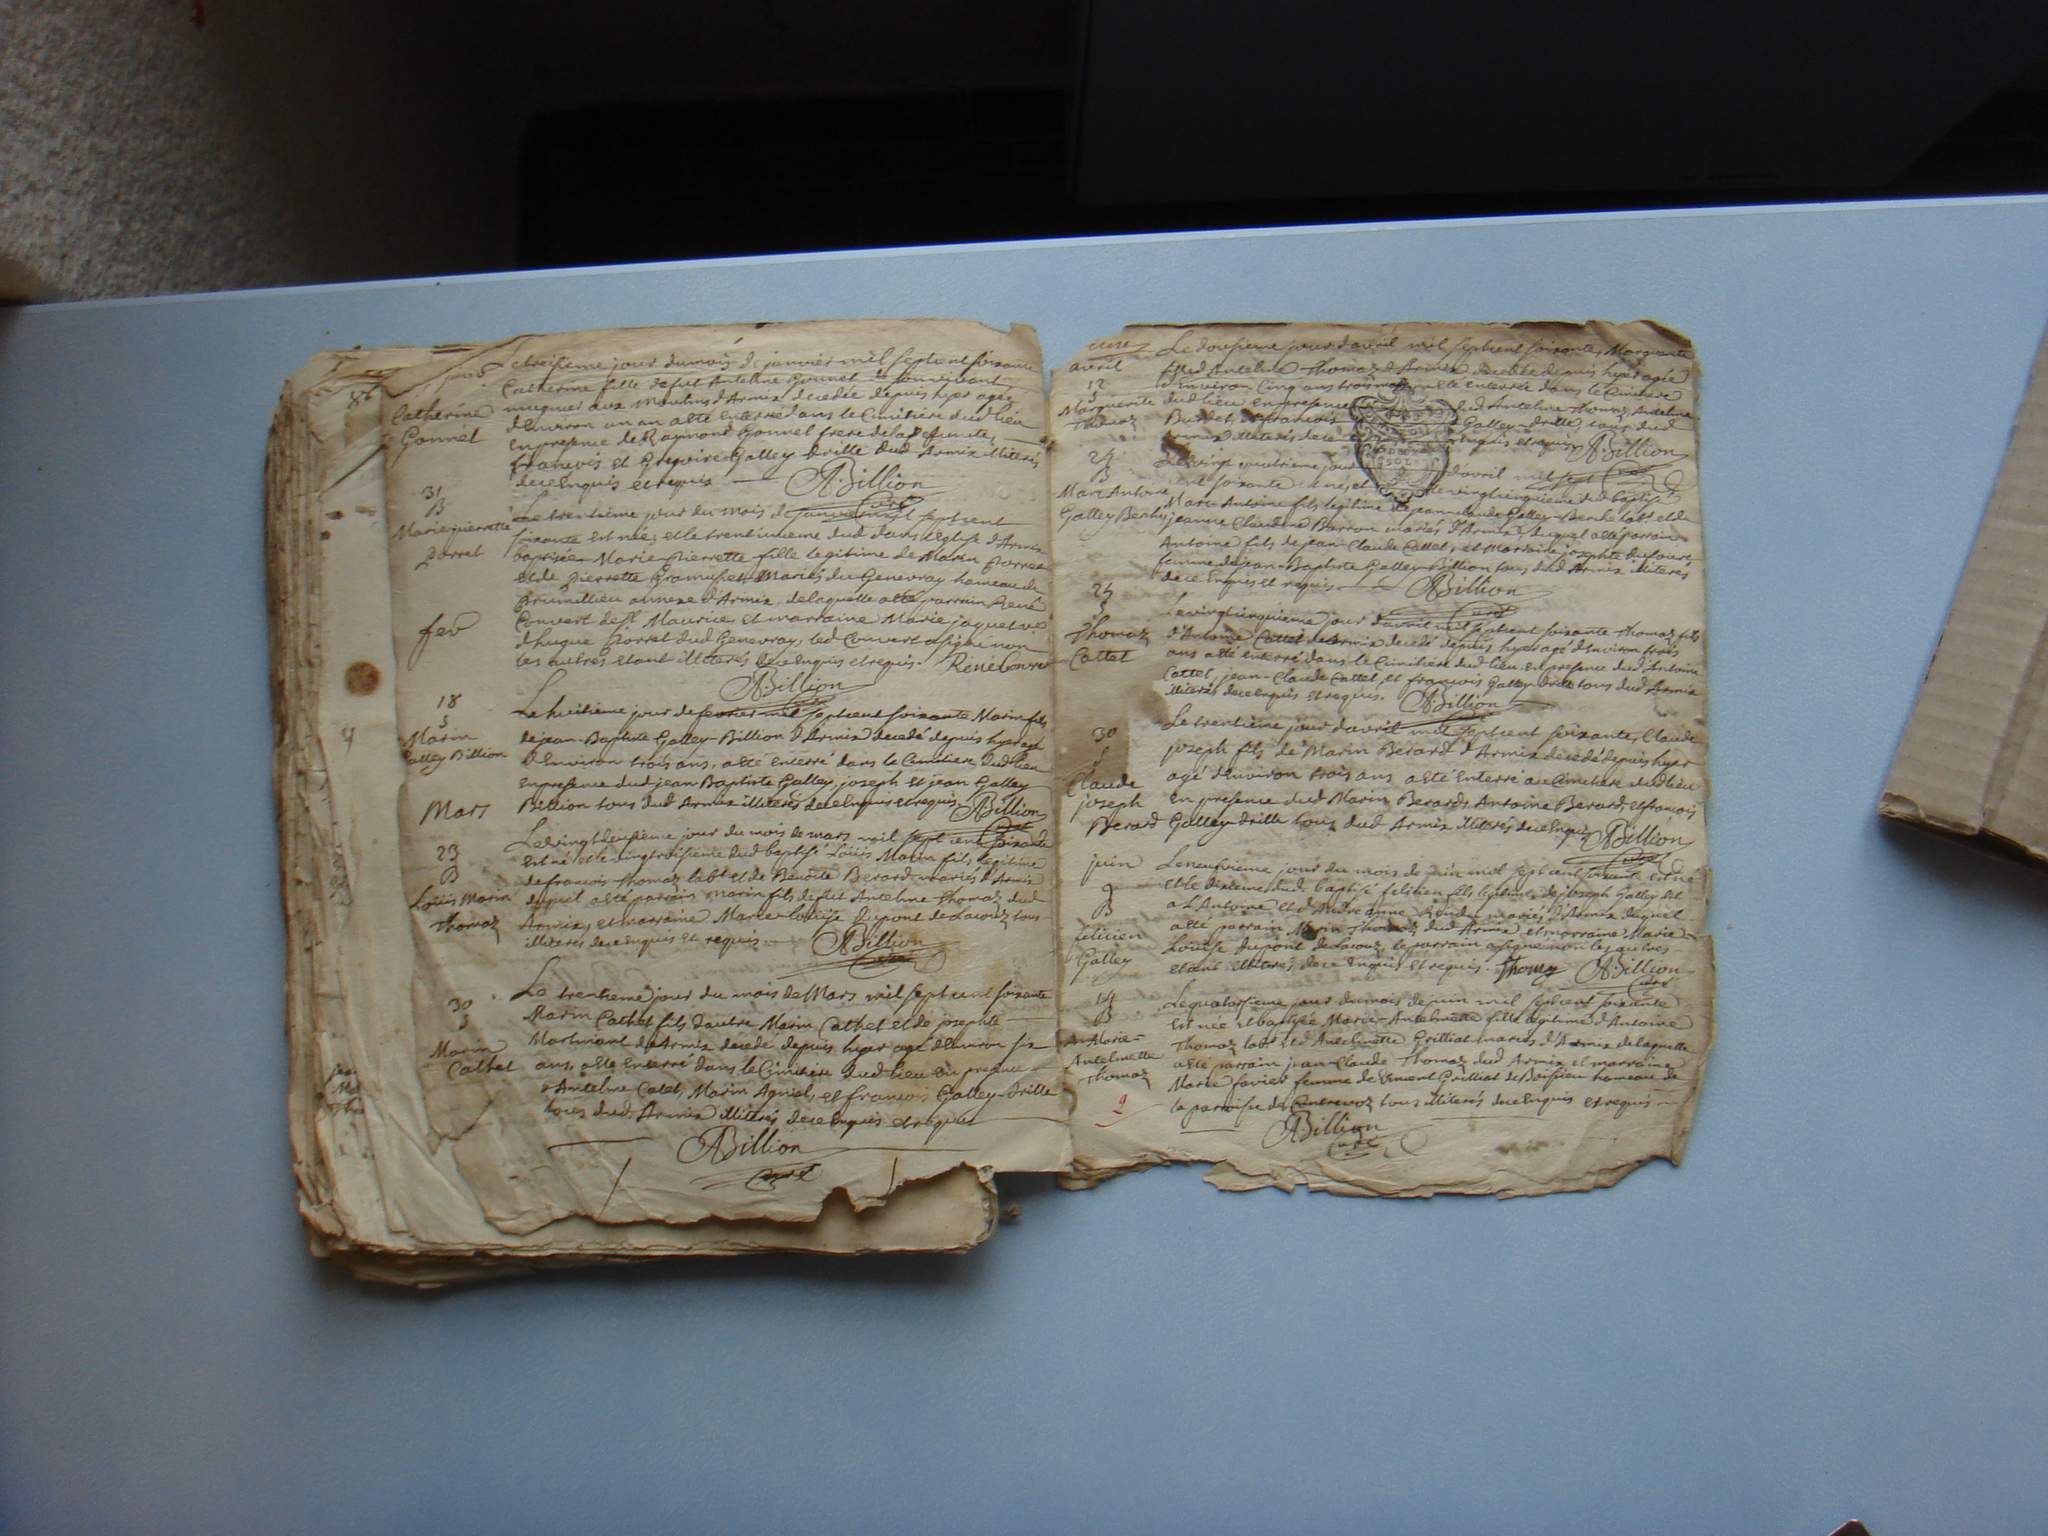 janv
Catherine
Gonnet
treisieme jour du mois de janvier mil septcent soixante
Catherine fille de fut Antelme Gonnet de son vivant
munier aux Moulins d'Armix decedée depuis hyer agée
d'Environ un an a eté Enterrée dans le Cimitiere dud lieu
En presence de Raymond Gonnet frere de la defunte,
francois et Gregoire Galley-drille dud Armix illiterés
de ce Enquis et requis ABillion
Curé
31
B
Marie pierrette
Porret
Le trentieme jour du mois de janvier mil septcent
soixante est née, et le trentunieme dud dans l'Eglise d'Armix
baptisée Marie-Pierrette fille legitime de Marin Porret
et de Pierrette Mariés du Genevray hameau de
annexe d'Armix, de laquelle a eté parrain René
Convert de St Maurice, et marraine Marie jaquet ve
d'hugue Porret dud Genevray, led Convert a signé non
les autres etant illiterés de ce Enquis et requis. René Convert
ABillion
fev
18
S
Marin
Galley Billion
Le huitieme jour de fevrier mil septcent soixante Marin fils
de jean-Baptiste Galley-Billion d'Armix decedé depuis hyer agé
d'Environ trois ans, a eté enterré dans le Cimitiere dud lieu
En presence dud jean Baptiste Galley, joseph et jean Galley
Billion tous dud Armix illiterés de ce Enquis et requis. ABillion
Curé
Mars
23
B
Louis Marin
Thomaz
Le vingtdeusieme jour du mois de mars mil sept cent soixante
Est né et le vingtroisieme dud baptisé Louis Marin fils legitime
de francois Thomaz labr et de Benoite Berard mariés d'Armix
duquel a eté parrain Marin fils de fut Antelme Thomaz dud
Armix, et marraine Marie-Louise Dupont de Lacouz tous
illiterés de ce Enquis et requis ABillion
Curé
30
S
Marin
Cathet
Le trentieme jour du mois de Mars mil septcent soixante
Marin Cathet fils d'autre Marin Cathet et de josephte
Martinant d'Armix decedé depuis hyer agé d'Environ six
ans, a eté enterré dans le Cimitiere dud lieu En presence
d'Antelme Catet, Marin Agniel, et francois Galley-drille
tous dud Armix illiterés de ce Enquis et requis
ABillion
Curé
avril
12
S
Marguerite
Thomaz
Le dousieme jour d'avril mil septcent soixante, Marguerite
fille d'Antelme Thomaz d'Armix decedée depuis hyer agée
d'Environ Cinq ans trois mois a eté enterrée dans le Cimitiere
dud lieu En presence dud Antelme Thomaz, Antelme
Burdet, et francois Galley-drille, tous dud
Armix illiterés de ce Enquis et requis ABillion
Curé
24
B
Marc Antoine
Galley Berthe
Le vingt quatrieme jour d'avril mil sept
cent soixante est né, et le vingtcinquieme dud baptisé
Marc Antoine fils legitime de jean-claude Galley-Berthe labr et de
jeanne Claudine Barron mariés d'Armix, duquel a eté parrain
Antoine fils de jean-Claude Cattet, et marraine josephte Dufour
femme de jean-Baptiste Galley-Billion tous dud Armix illiterés
de ce Enquis et requis ABillion
Curé
25
S
Thomaz
Cattet
Le vingtcinquieme jour d'avril mil septcent soixante Thomaz fils
d'Antoine Cattet d'Armix decedé depuis hyer agé d'Environ trois
ans a eté enterré dans le Cimitiere dud lieu en presence dud Antoine
Cattet, jean-Claude Cattet, et francois Galley-drille tous dud Armix
illiterés de ce enquis et requis. ABillion
30
S
Claude
joseph
Berard
Le trentieme jour d'avril mil septcent soixante, Claude
joseph fils de Marin Berard d'Armix decedé depuis hyer
agé d'Environ trois ans a eté Enterré au Cimitiere dud lieu
En presence dud Marin Berard, Antoine Berard, et francois
Galley-drille tous dud Armix illiterés de ce Enquis ABillion
Curé
juin
9
B
felicien
Galley
Le neufvieme jour du mois de juin mil septcent soixante est né
et le dixieme dud, baptisé felicien fils legitime de joseph Galley dit
a L'Antoine et d'Andreanne mariés d'Armix duquel
a eté parrain Marin Thomaz dud Armix et marraine Marie
Louise Dupont de Lacouz, le parrain a signé non les autres
etant illiterés de ce Enquis et requis. Thomaz ABillion
Curé
14
B
Marie-
Antelmette
Thomaz
Le quatorsieme jour du mois de juin mil septcent soixante
Est née et baptisée Marie-Antelmette fille legitime d'Antoine
Thomaz labr et d'Antelmette Grilliat mariés d'Armix de laquelle
a eté parrain jean-Claude Thomaz dud Armix et marraine
Marie favier femme de Grilliat de Boissieu hameau de
la paroisse de Contrevoz tous illiterés de ce Enquis et requis
ABillion
Curé
2